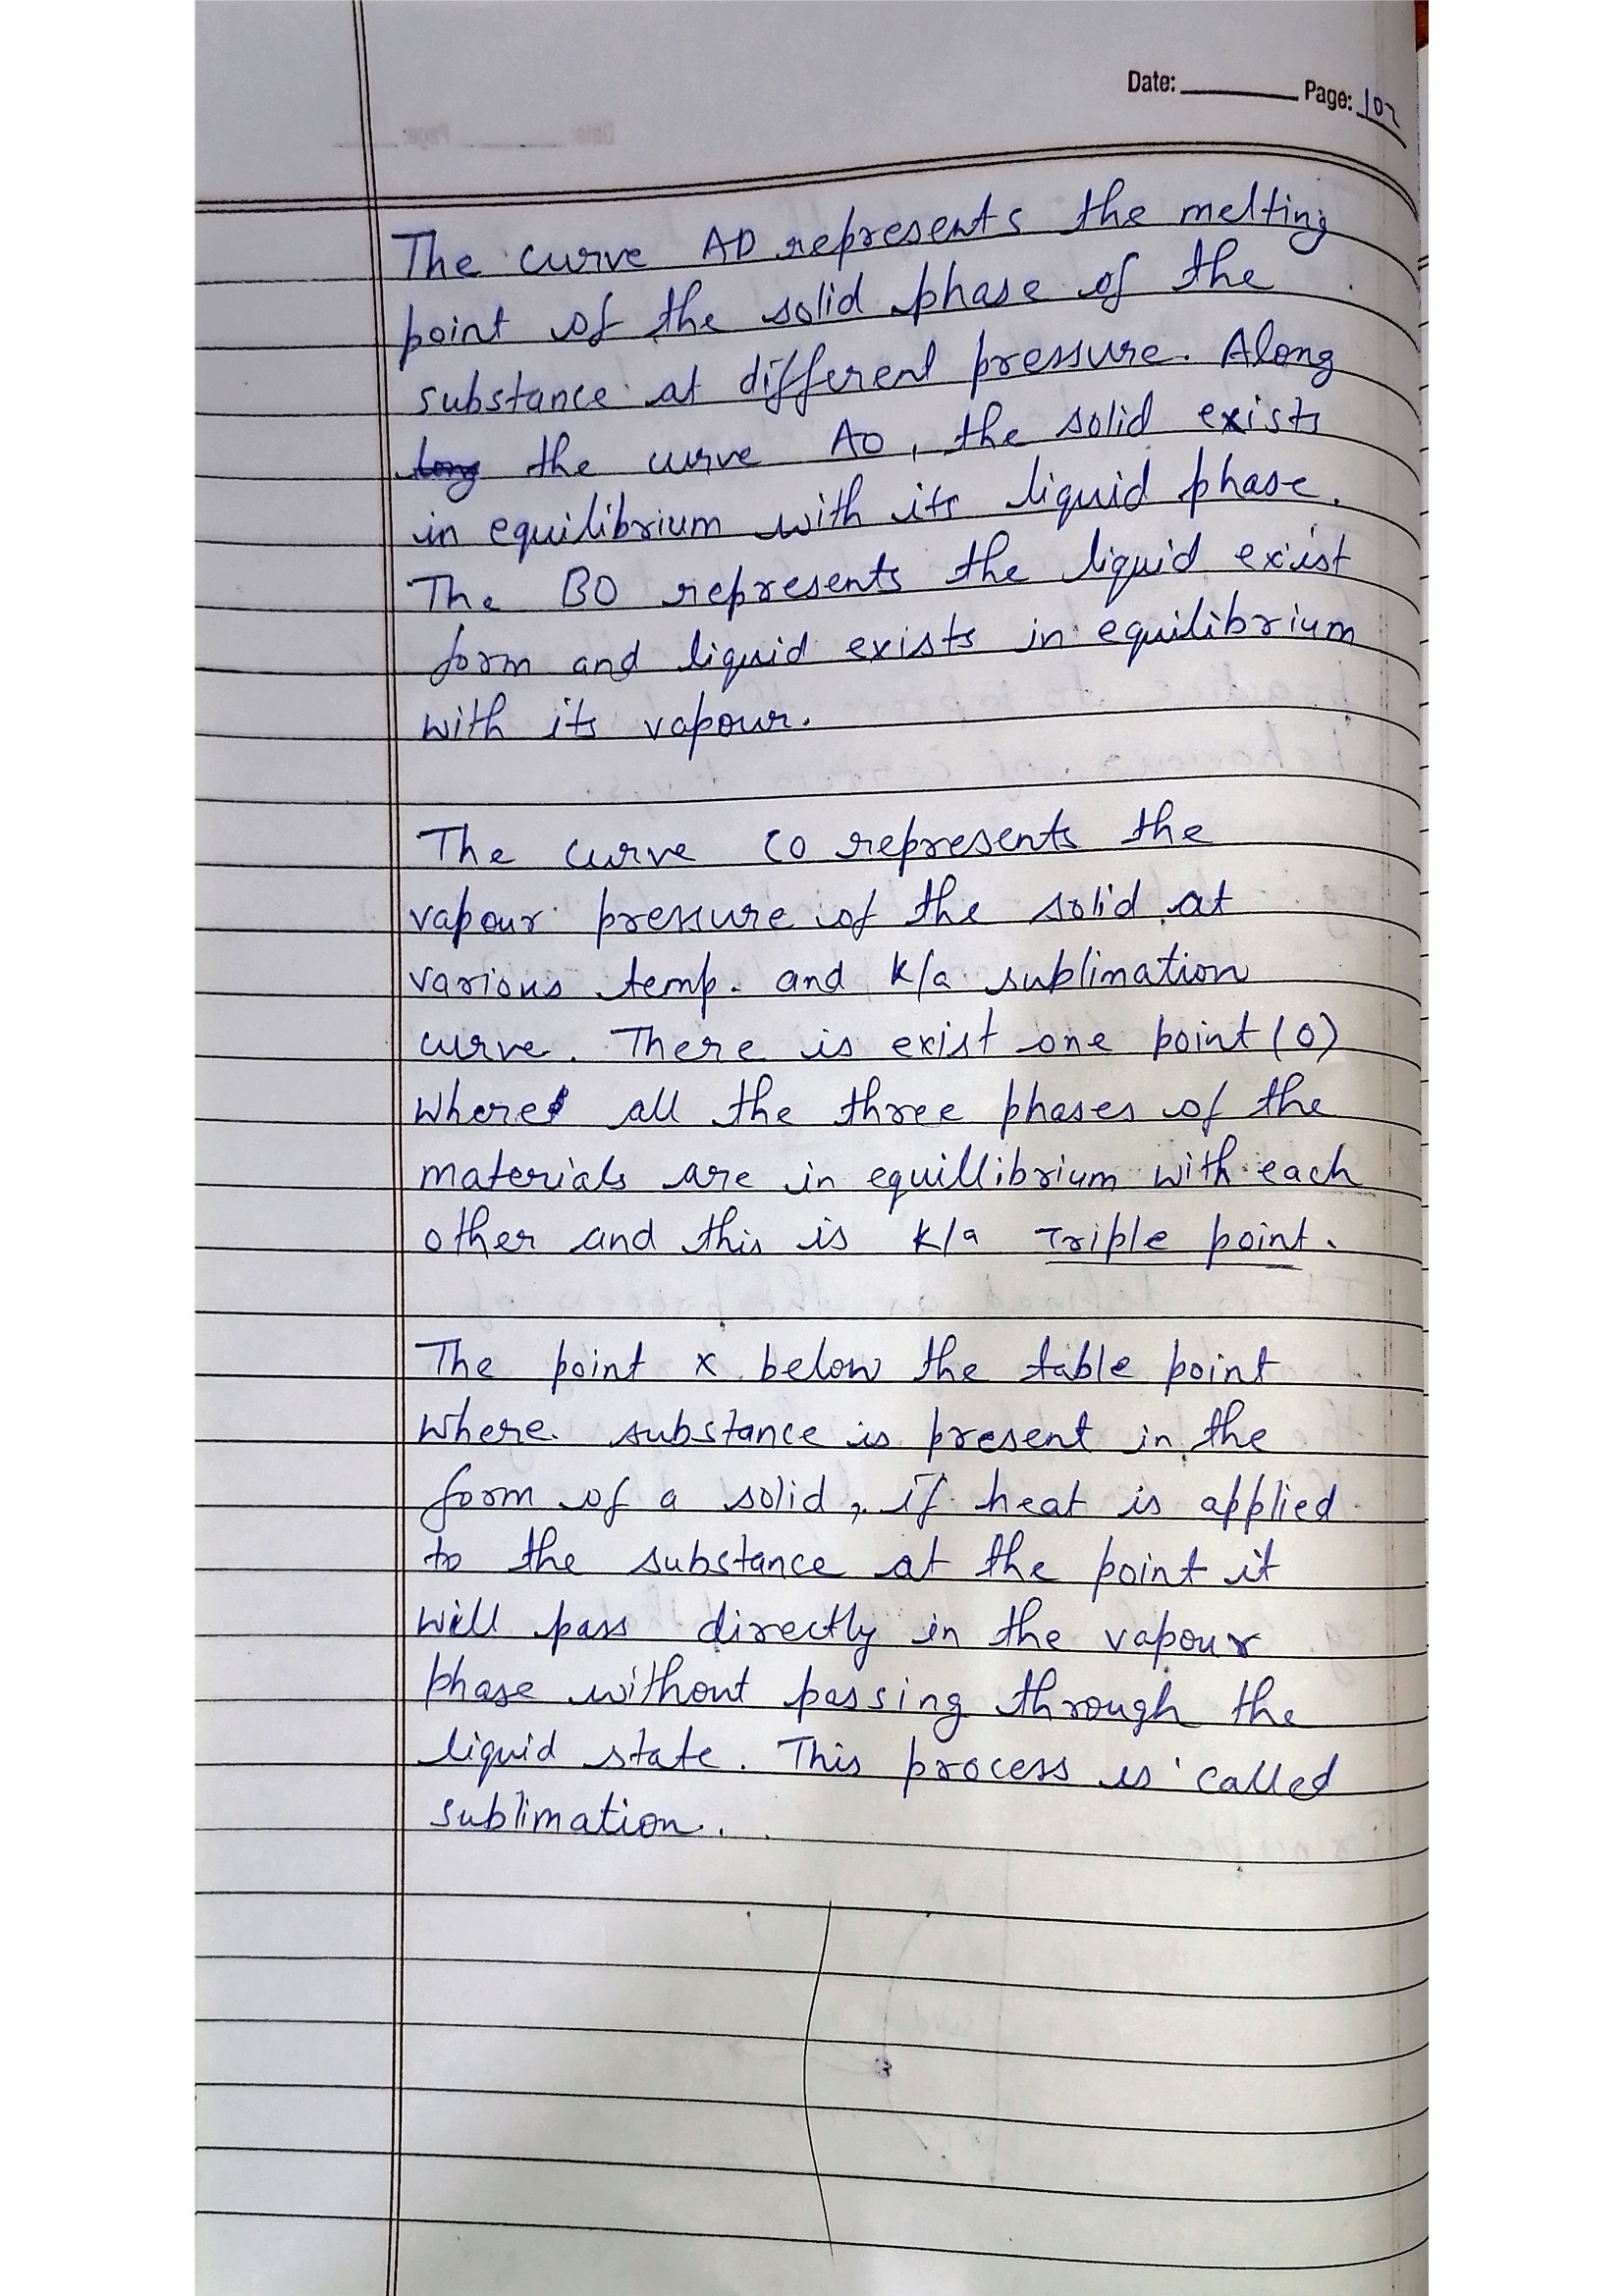 Date: Page: 102
The curve AD represents the melting
point of the solid phase of the
substance at different pressure. Along
long the curve AO, the solid exists
in equilibrium with its liquid phase.
The BO represents the liquid exist
form and liquid exists in equilibrium
with its vapour.
The curve CO represents the
vapour pressure of the solid at
various temp. and k/a sublimation
curve. There is exist one point (O)
where all the three phases of the
materials are in equillibrium with each
other and this is k/a Triple point.
The point x below the table point
where substance is present in the
form of a solid, if heat is applied
to the substance at the point it
will pass directly in the vapour
phase without passing through the
liquid state. This process is called
sublimation.